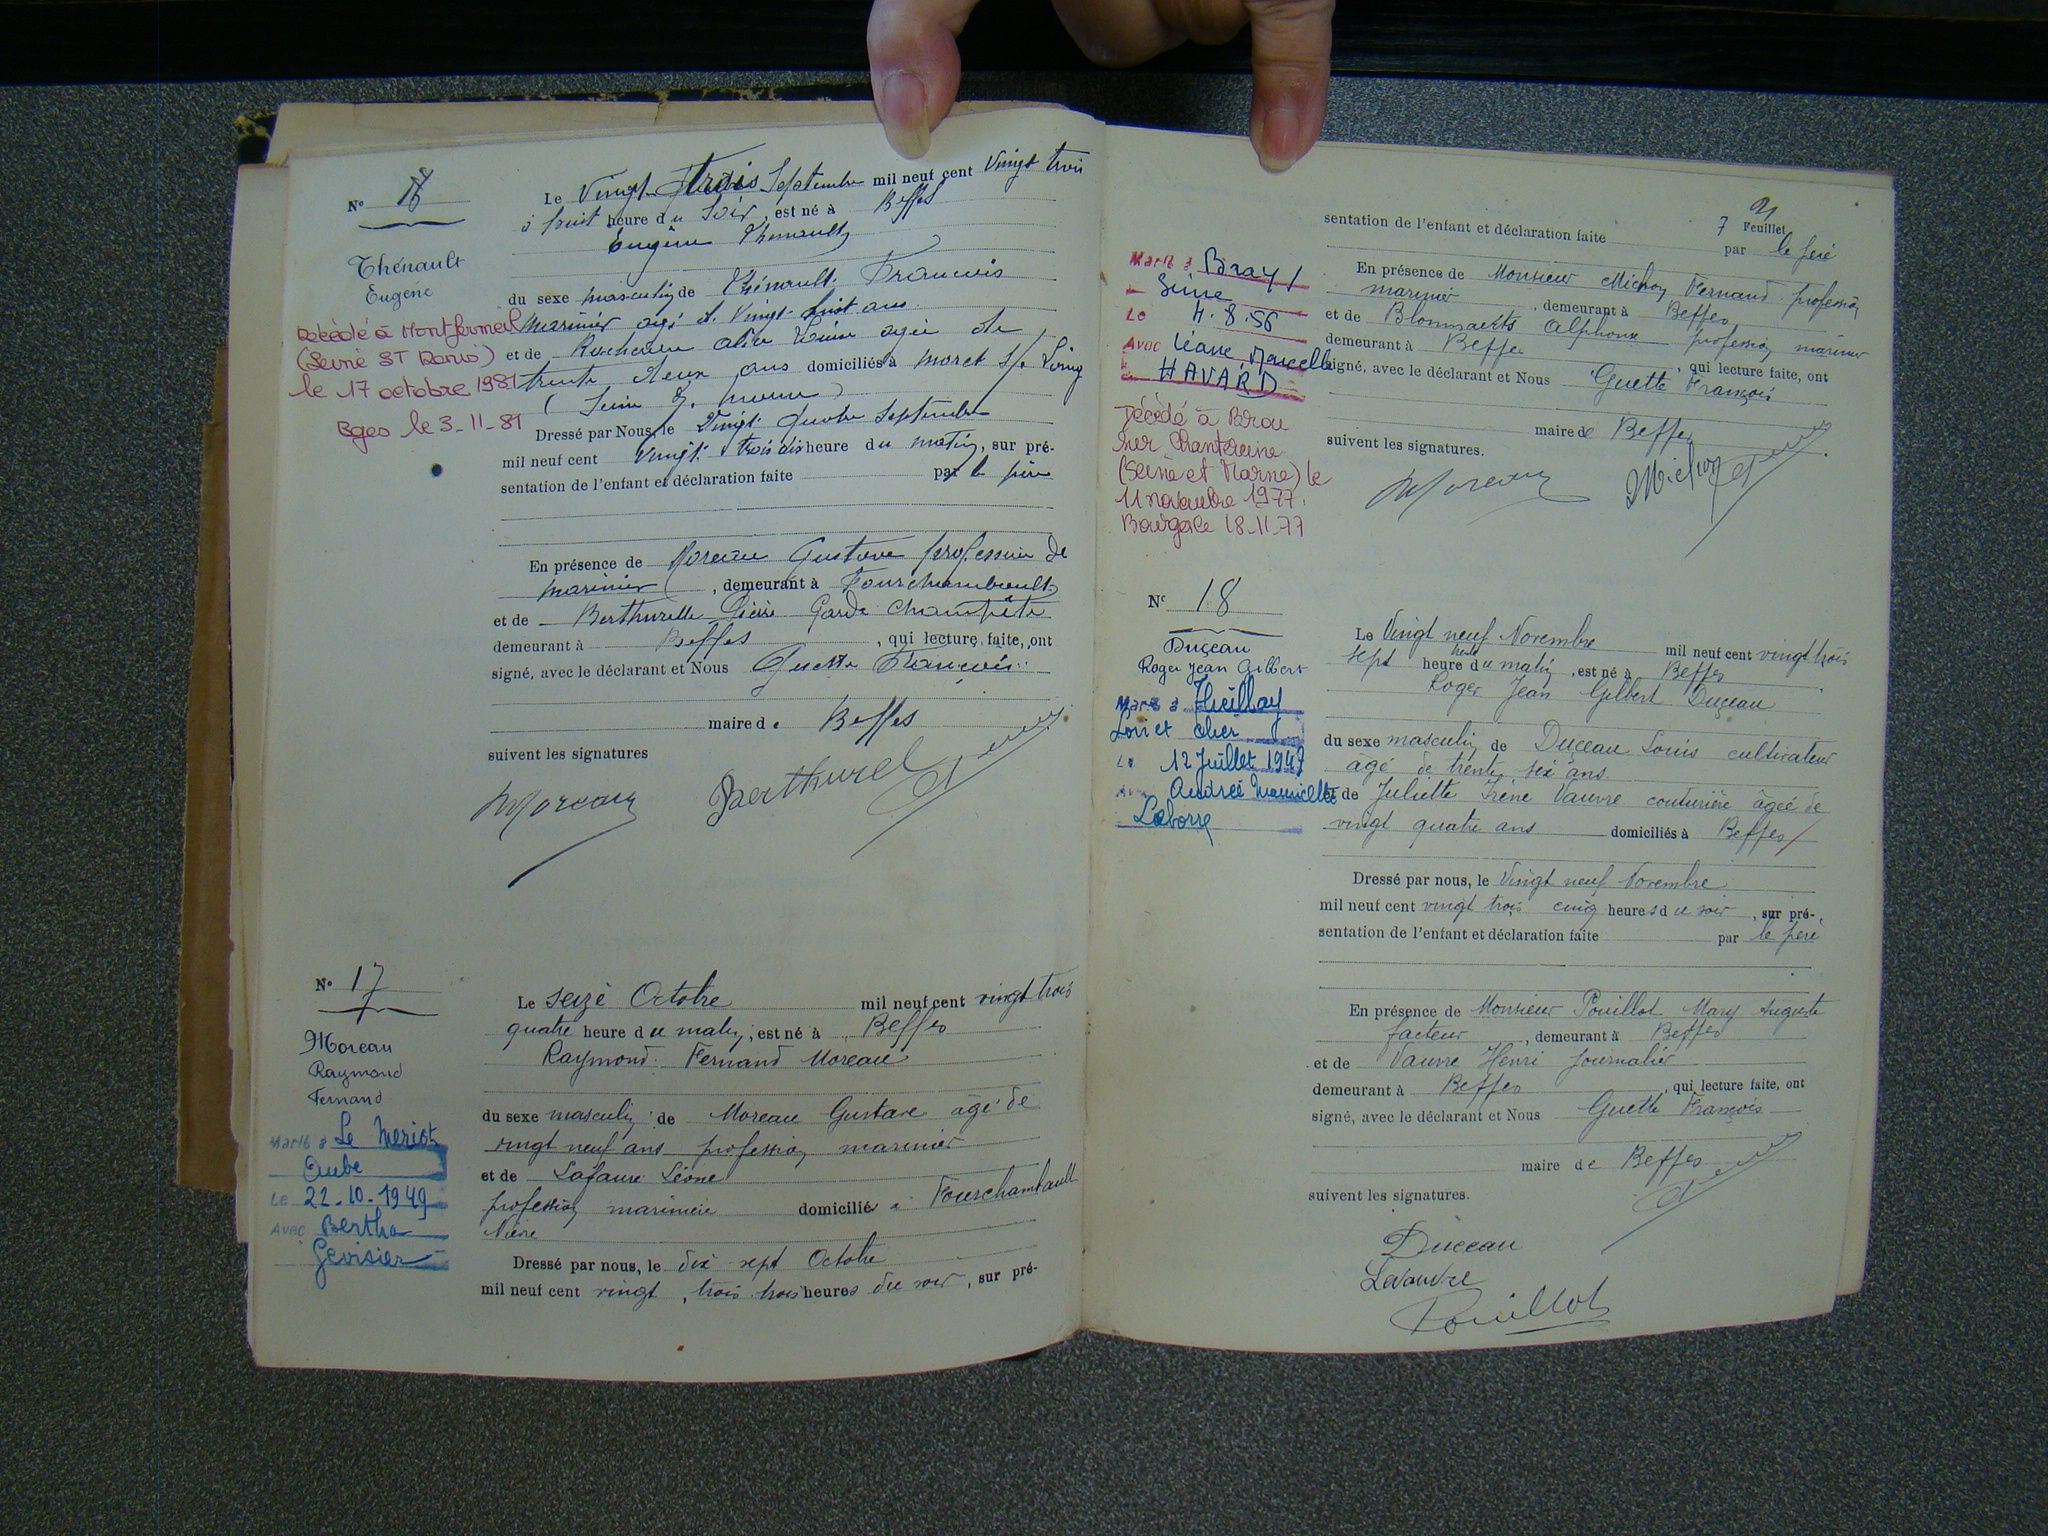 N° 16
Thénault
Eugène
Décédé à Montfermeil
(Seine ST Denis)
le 17 octobre 1981
Bges le 3-11-81
Le Vingt Trois Septembre mil neuf cent Vingt trois
à huit heure du Soir, est né à Beffes
Eugène Thénault
du sexe masculin de Thénault François
marinier agé de Vingt huit ans
et de Rocheau Louise agée de
trente deux ans domiciliés à Moret s/. Loing
(Seine & marne)
Dressé par Nous, le Vingt Quatre Septembre
mil neuf cent Vingt trois dix heure du matin, sur pré-
sentation de l'enfant et déclaration faite par le père
En présence de Moreau Gustave profession de
marinier, demeurant à Fourchambault
et de Berthurelle Pierre Garde Champêtre
demeurant à Beffes, qui lecture faite, ont
signé, avec le déclarant et Nous Guette François
maire de Beffes
suivent les signatures
Moreau Berthurel
N° 17
Moreau
Raymond
Fernand
Marié à Le Meriot
Aube
Le 22-10-1949
Avec Bertha
Gevisier
Le seize Octobre mil neuf cent vingt trois
quatre heure du matin, est né à Beffes
Raymond Fernand Moreau
du sexe masculin de Moreau Gustave âgé de
vingt neuf ans profession marinier
et de Lafaure Léone
profession marinière domicilié à Fourchambault
Nièvre
Dressé par nous, le dix sept Octobre
mil neuf cent vingt, trois trois heures du soir, sur pré-
7 Feuillet
sentation de l'enfant et déclaration faite par le père
En présence de Monsieur Michoy Fernand profession
marinier, demeurant à Beffes
et de Blommaerts Alphonse profession marinier
demeurant à Beffes, qui lecture faite, ont
signé, avec le déclarant et Nous Guette François
maire de Beffes
suivent les signatures.
Moreau Michoy
Marié à Bray/
Seine
Le 4.8.56
Avec Liane Marcelle
HAVARD
Décédé à Brou
sur Chantereine
(Seine et Marne) le
11 novembre 1977.
Bourges le 18-11-77
N° 18
Duceau
Roger Jean Gilbert
Marié à Theillay
Loir et Cher
Le 12 Juillet 1947
Avec Andrée Mauricette
Laborre
Le Vingt neuf Novembre mil neuf cent vingt trois
sept heure du matin, est né à Beffes
Roger Jean Gilbert Duceau
du sexe masculin de Duceau Louis cultivateur
agé de trente six ans
et de Juliette Irène Vauvre couturière âgée de
vingt quatre ans domiciliés à Beffes
Dressé par nous, le Vingt neuf Novembre
mil neuf cent vingt trois cinq heures du soir, sur pré-
sentation de l'enfant et déclaration faite par le père
En présence de Monsieur Pouillot Mary Auguste
facteur, demeurant à Beffes
et de Vauvre Henri journalier
demeurant à Beffes, qui lecture faite, ont
signé, avec le déclarant et Nous Guette François
maire de Beffes
suivent les signatures.
Duceau
Pouillot